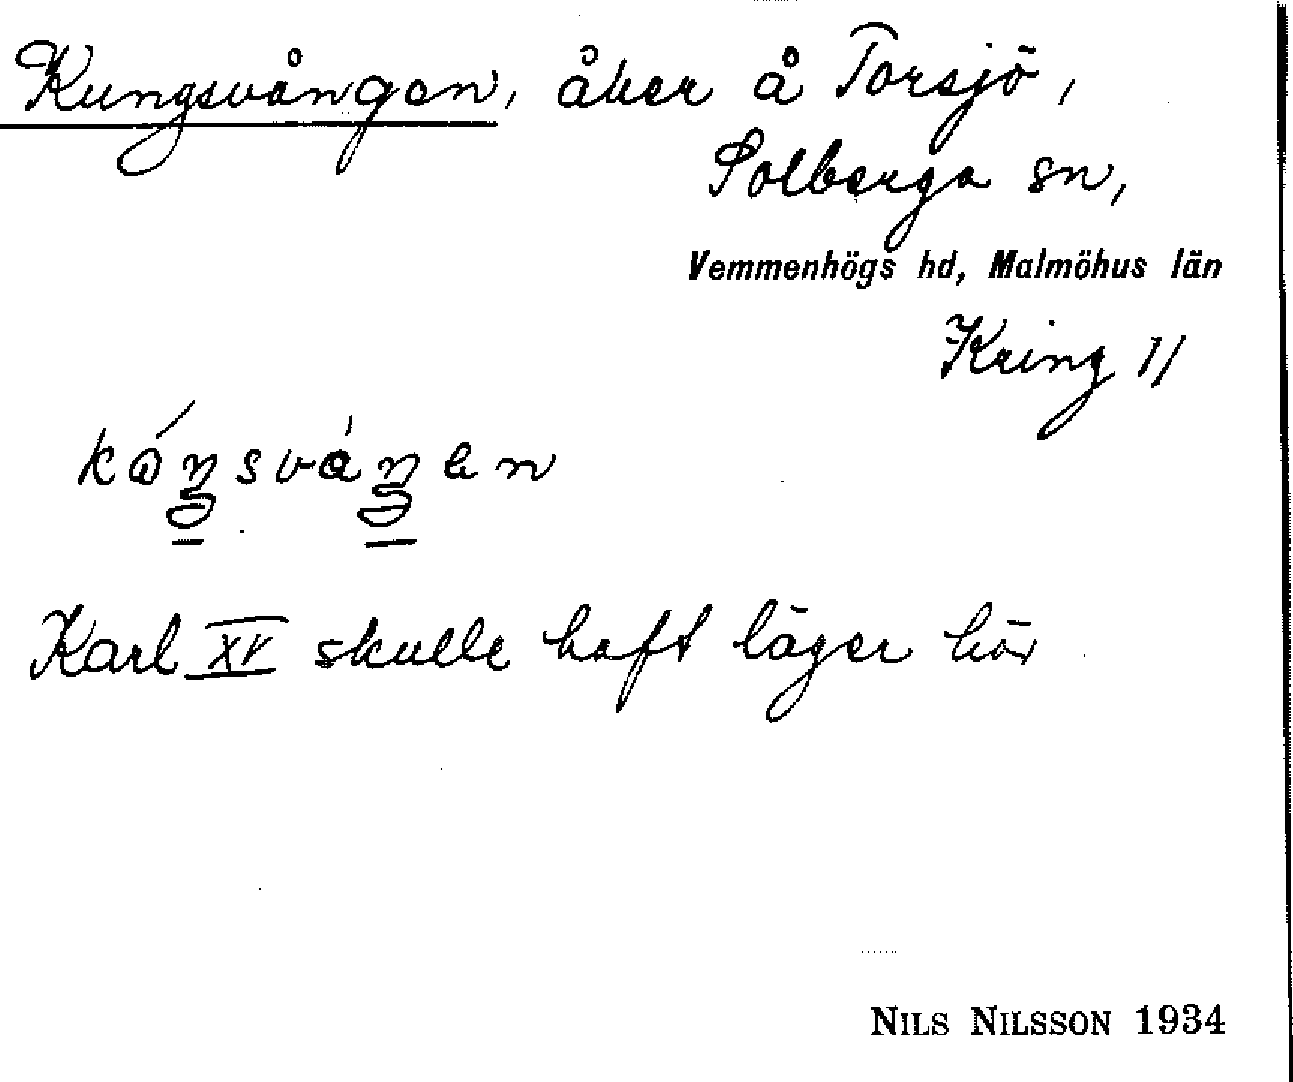 Kungsvången, åker å Torsjö,
Solberga sn,
Vemmenhögs hd, Malmöhus län
Kring 11
kóŋsváŋen
Karl XV skulle haft läger här
NILS NILSSON 1934